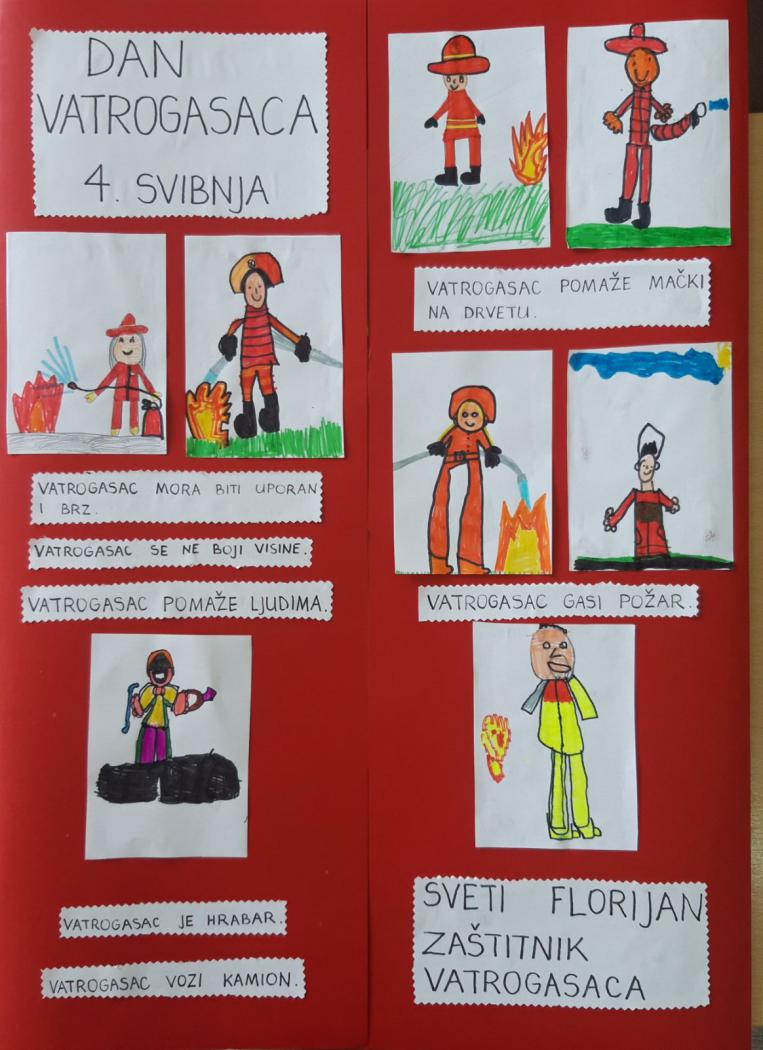 DAN
VATROGASACA
4. SVIBNJA
VATROGASAC MORA BITI UPORAN
I BRZ.
VATROGASAC SE NE BOJI VISINE.
VATROGASAC POMAŽE LJUDIMA.
VATROGASAC JE HRABAR.
VATROGASAC VOZI KAMION.
VATROGASAC POMAŽE MAČKI
NA DRVETU.
VATROGASAC GASI POŽAR.
SVETI FLORIJAN
ZAŠTITNIK
VATROGASACA